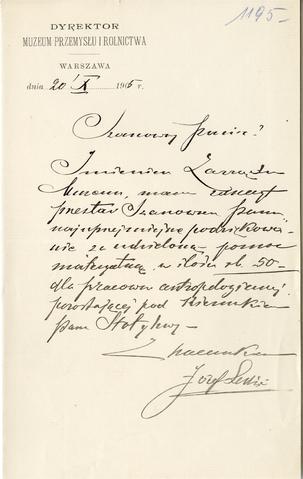 1195-
DYREKTOR
MUZEUM PRZEMYSŁU I ROLNICTWA
WARSZAWA
dnia 20/X 1915 r.
Szanowny Panie!
Imieniem Zarządu
Muzeum, mam zaszczyt
przesłać Szanownemu Panu
najuprzejmiejsze podziękowa-
nie za udzieloną pomoc
materyalną w ilości rb. 50-
dla pracowni antropologicznej
pozostającej pod kierunkiem
pana Stołyhwy-
Józef